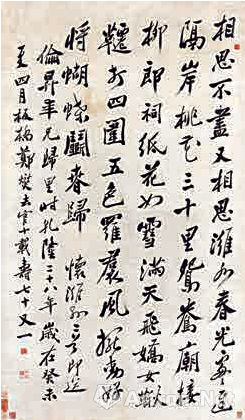 相思不盡又相思濰水春光處處遲
隔岸桃花三十里鴛鴦廟接
柳郎祠紙花如雪滿天飛嬌女鞦
韆打四圍五色羅裙風擺動好
將蝴蝶鬬春歸 懷濰縣二首送
倫昇年兄歸里時乾隆二十八年歲在癸未
夏四月板橋鄭燮去官十載壽七十又一